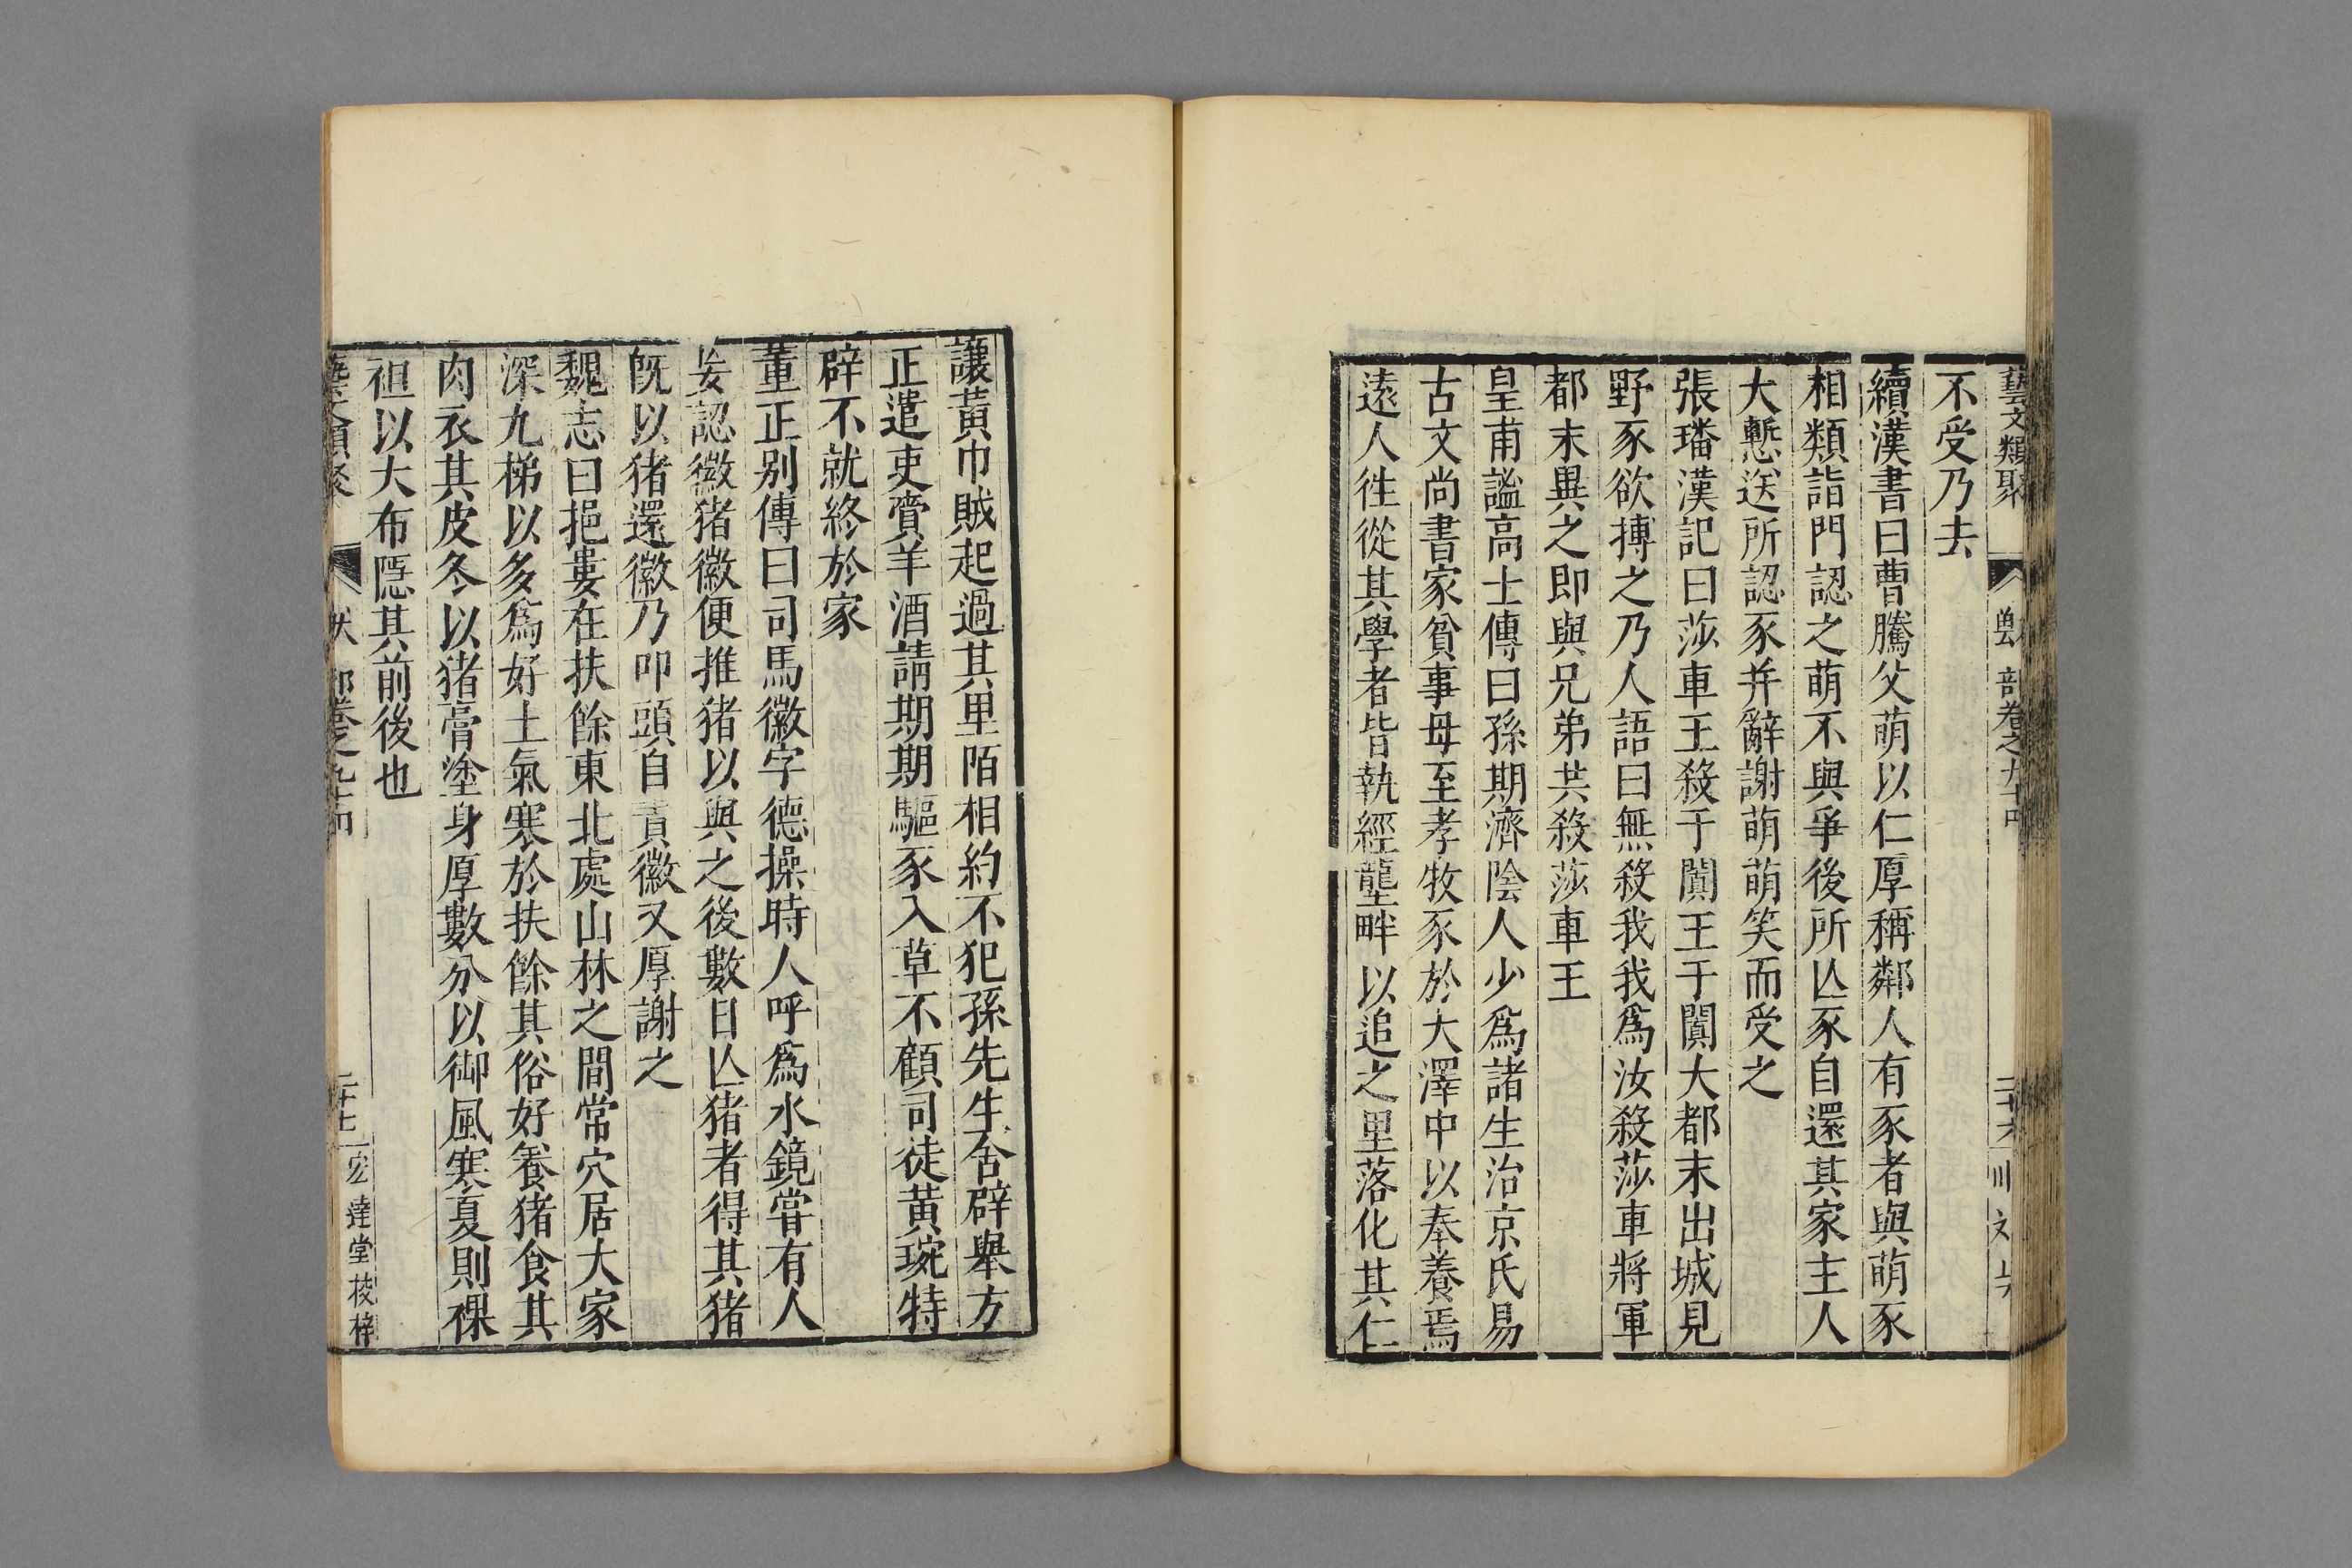 藝文類聚 獸部卷之九十四 二十六
不受乃去
續漢書曰曹騰父萌以仁厚稱鄰人有豕者與萌豕
相類詣門認之萌不與爭後所亾豕自還其家主人
大慙送所認豕并辭謝萌萌笑而受之
張璠漢記曰莎車王殺于闐王于闐大都末出城見
野豕欲搏之乃人語曰無殺我我爲汝殺莎車將軍
都末異之即與兄弟共殺莎車王
皇甫謐高士傳曰孫期濟陰人少爲諸生治京氏易
古文尚書家貧事母至孝牧豕於大澤中以奉養焉
遠人徃從其學者皆執經壟畔以追之里落化其仁
讓黃巾賊起過其里陌相約不犯孫先生舍辟舉方
正遣吏賫羊酒請期期驅豕入草不顧司徒黃琬特
辟不就終於家
董正别傳曰司馬徽字德操時人呼爲水鏡嘗有人
妄認徽猪徽便推猪以與之後數日亾猪者得其猪
旣以猪還徽乃叩頭自責徽又厚謝之
魏志曰挹婁在扶餘東北處山林之間常穴居大家
深九梯以多爲好土氣寒於扶餘其俗好養猪食其
肉衣其皮冬以猪膏塗身厚數分以御風寒夏則裸
袒以大布隱其前後也
藝文類聚 獸部卷之九十四 二十七 宏達堂校梓